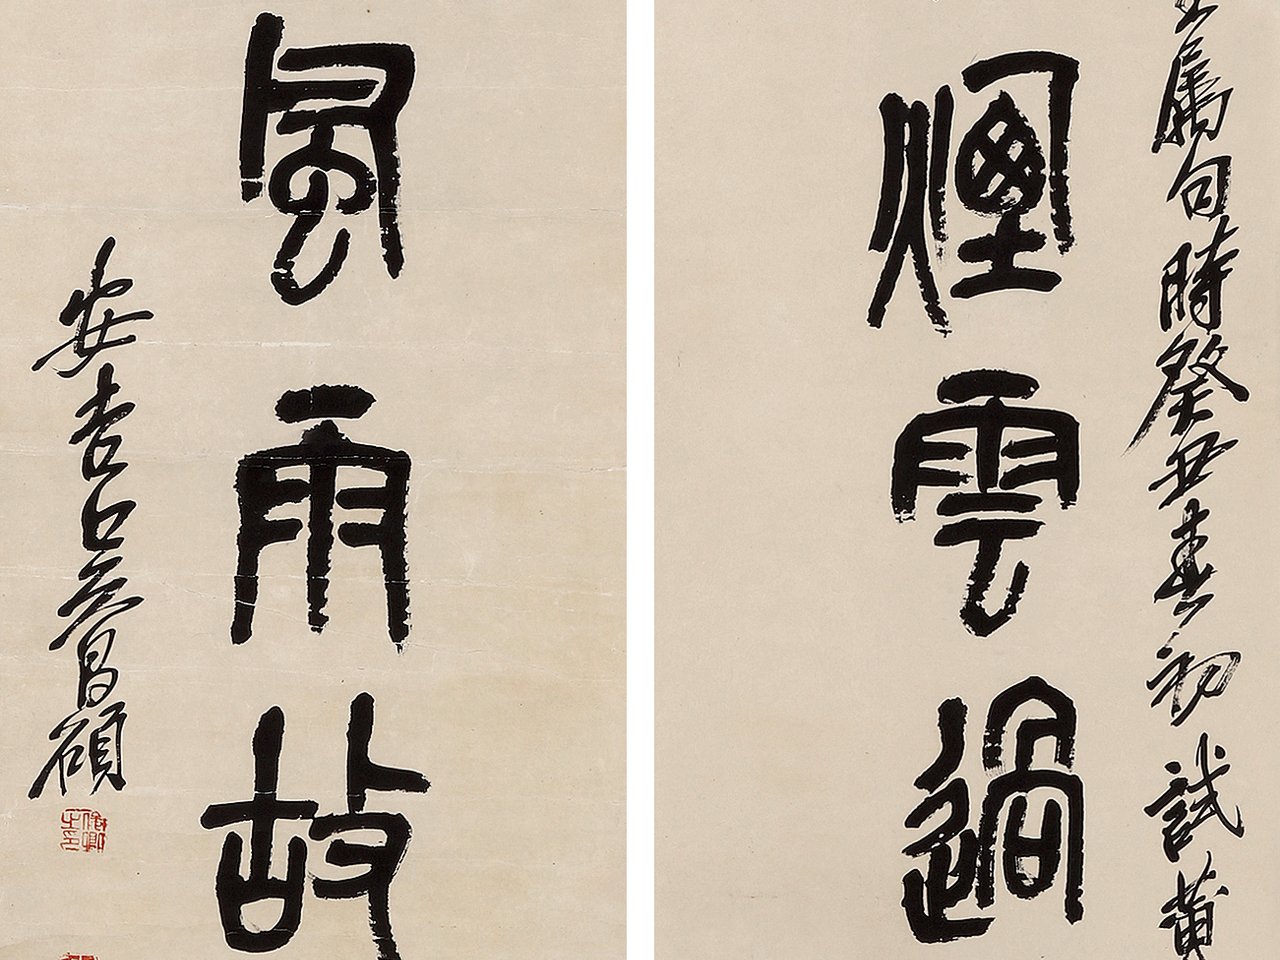 屬句時癸丑春初試黄
煙雲過
風雨故
安吉吳昌碩